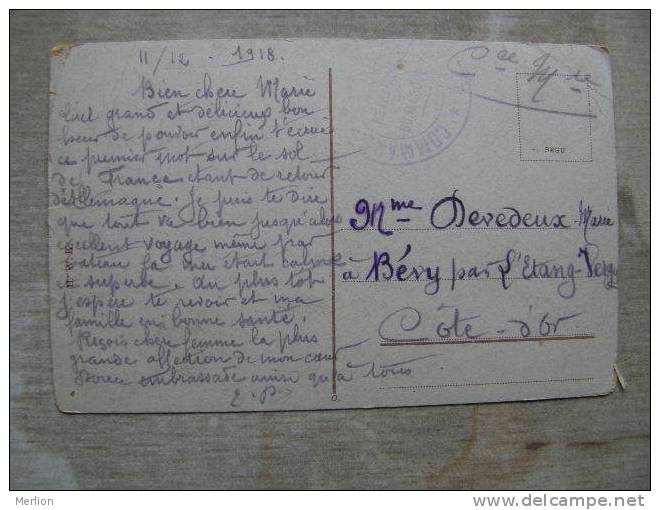 11/12 - 1918.
Bien chere Marie
quel grand et délicieux bon
heur de pouvoir enfin t'écrire
ce premier mot sur le sol
de France étant de retour
d'Allemagne. Je puis te dire
que tout va bien jusqu'alors
excellent voyage même par
bateau la mer était calme
et superbe. au plus tôt
j'espère te revoir et ma
famille en bonne santé.
Reçois chère femme la plus
grande affection de mon cœur
Douce embrassade ainsi qu'à tous
E. D.
COMM
Cce Mre
Mme Devedeux Marie
à Bévy par L'Etang-Vergy
Côte-d'Or
Merlion
www.delcampe.net